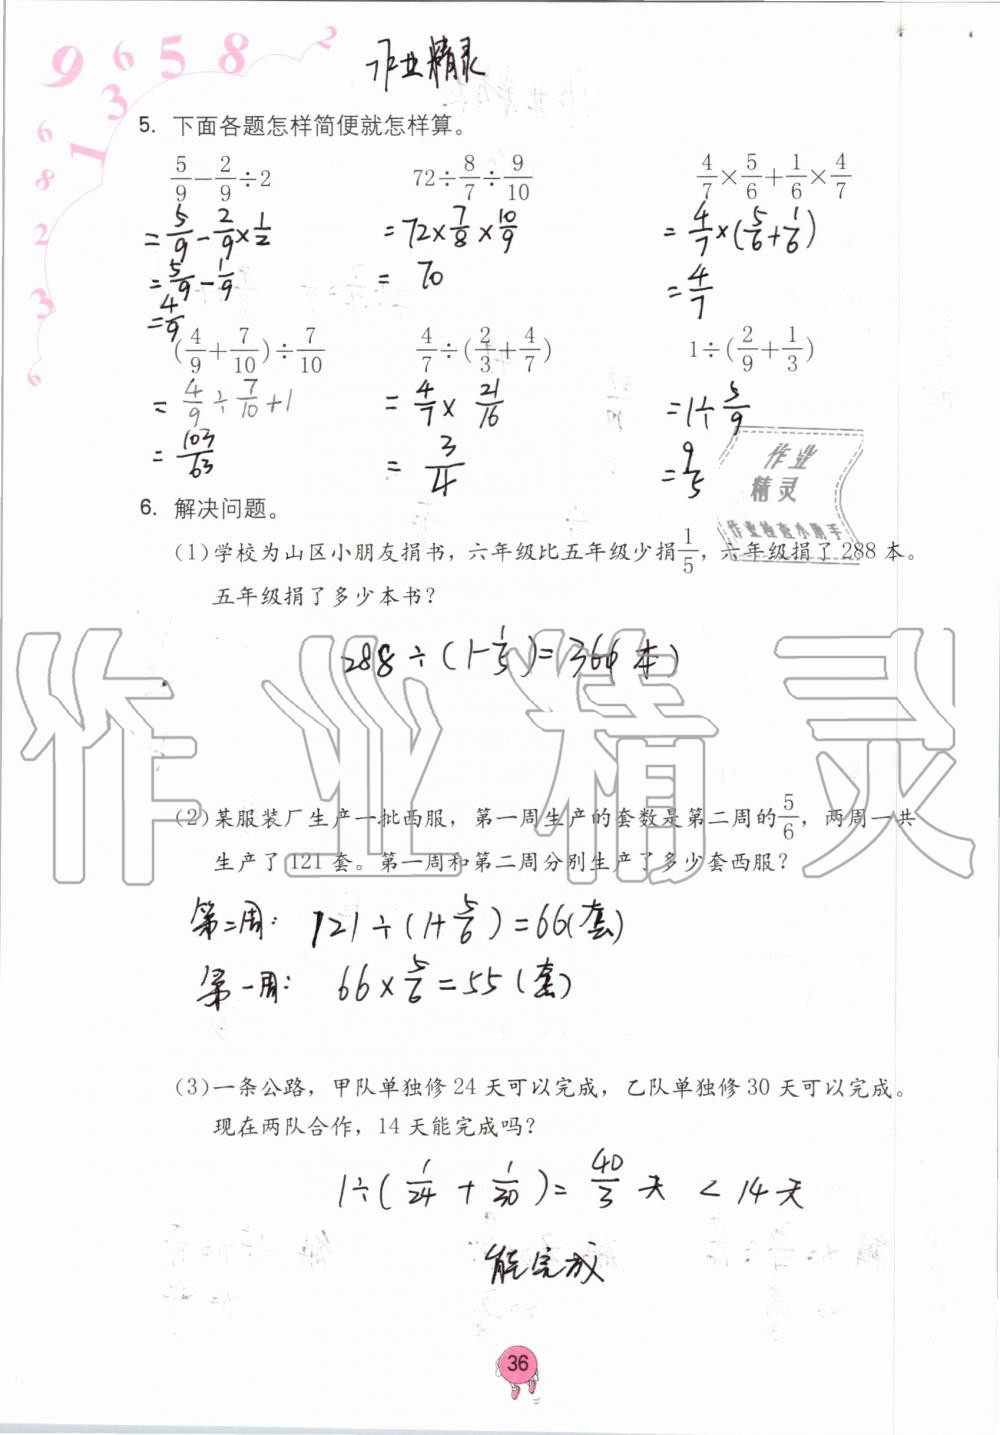 9 6 5 8 2
1 3
6 8 2 3 6
作业精灵
5. 下面各题怎样简便就怎样算。
5/9-2/9÷2    72÷8/7÷9/10    4/7×5/6+1/6×4/7
=5/9-2/9×1/2    =72×7/8×10/9    =4/7×(5/6+1/6)
=5/9-1/9    =70    =4/7
=4/9
(4/9+7/10)÷7/10    4/7÷(2/3+4/7)    1÷(2/9+1/3)
=4/9÷7/10+1    =4/7×21/16    =1÷5/9
=103/63    =3/4    =9/5
作业
精灵
作业检查小助手
6. 解决问题。
(1)学校为山区小朋友捐书，六年级比五年级少捐1/5，六年级捐了288本。
五年级捐了多少本书？
288÷(1-1/5)=360(本)
作业精灵
(2)某服装厂生产一批西服，第一周生产的套数是第二周的5/6，两周一共
生产了121套。第一周和第二周分别生产了多少套西服？
第二周: 121÷(1+5/6)=66(套)
第一周: 66×5/6=55(套)
(3)一条公路，甲队单独修24天可以完成，乙队单独修30天可以完成。
现在两队合作，14天能完成吗？
1÷(1/24+1/30)=40/3天 <14天
能完成
36